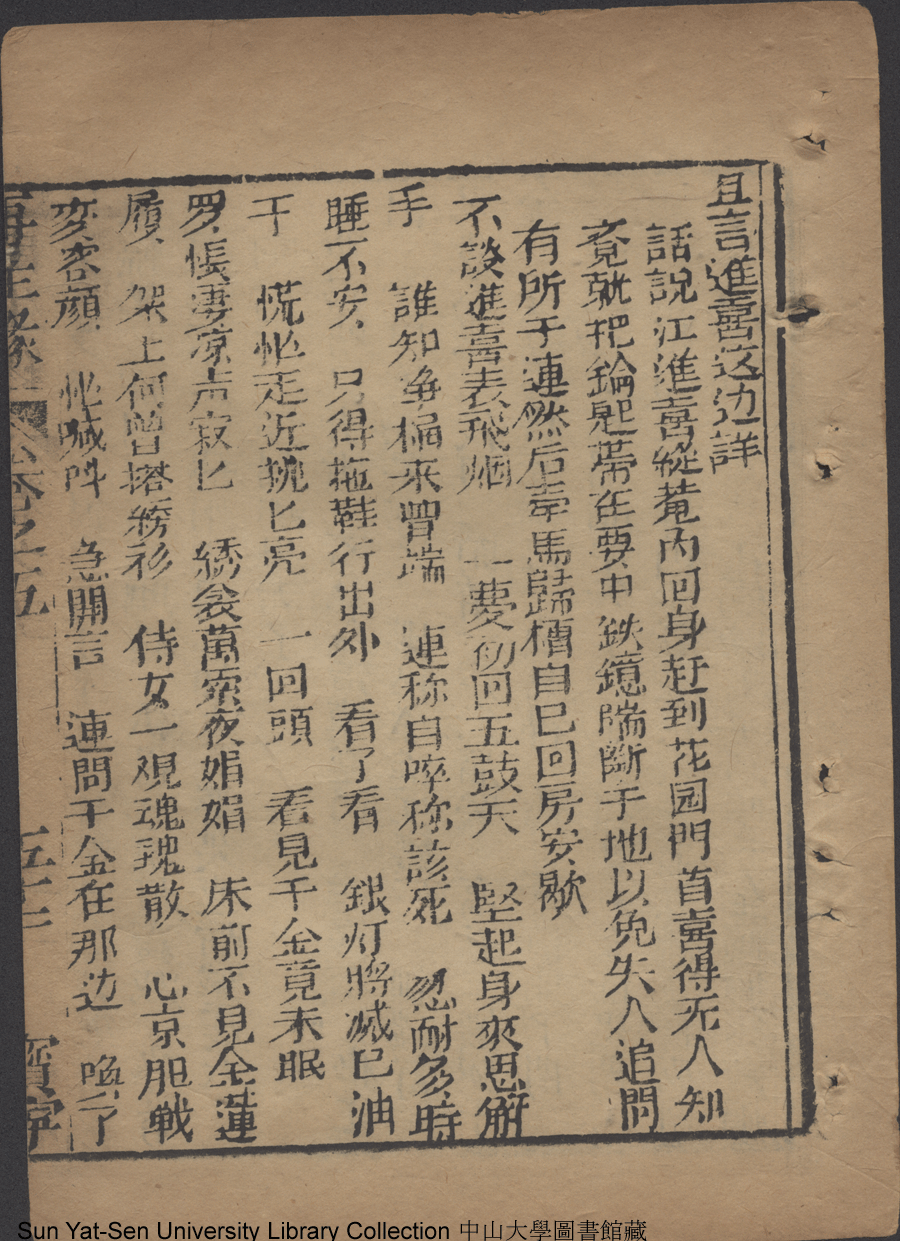 且言進喜这边詳
話說江進喜縱菴內回身赶到花园門首喜得无人知
竟就把鑰匙帶在要中鉄鐿喘斷于地以免失人追問
有所于連然后牵馬歸槽自已回房安歇
不談進喜表飛烟 一夢初回五鼓天 堅起身來思觧
手 誰知净桶来曾端 連称自啐称該死 忽耐多時
睡不安 只得拖鞋行出外 看了看 銀灯將滅已油
干 慌忙走近挑匕亮 一回頭 看見千金竟未眠
罗帳凄凉声寂匕 綉衾萬寂夜娟娟 床前不見金蓮
履 架上何曾搭綉衫 侍女一观魂魄散 心京胆戦
変容顔 忙喊呌 急開言 連問千金在那边 喚了
再生緣 卷之五 五十 寳寧